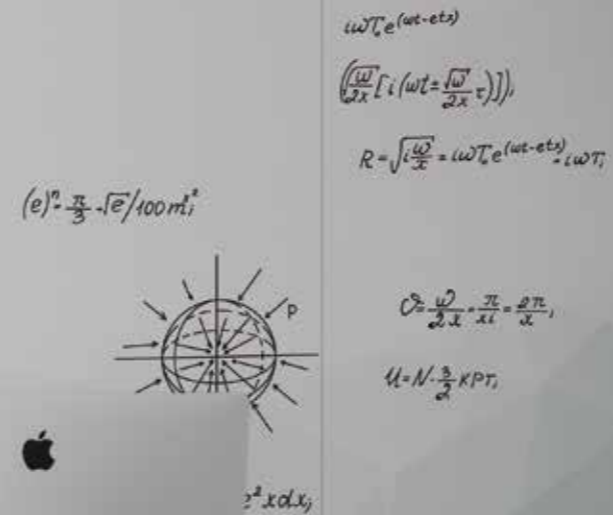 (e)ⁿ·π/3 -√e/100m²;
P
e²xdx;
iωT₀e^(ωt-etx)
((√ω/2x[i(ωt±√ω/2x τ)]),
R=√i ω/x = iωT₀e^(ωt-etx)·iωT;
ϑ=ω/2x=π/xi=2π/x,
U=N·3/2 KPT,